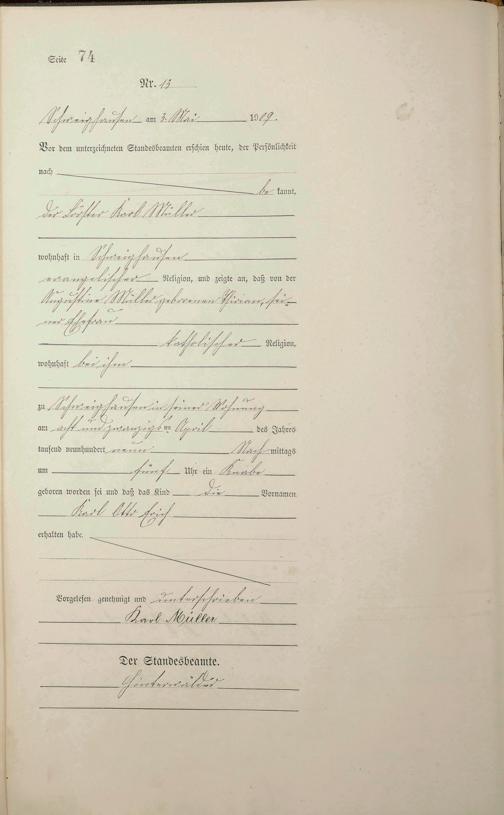 Seite 74
Nr. 13
Schweighausen am 3. Mai 1909.
Vor dem unterzeichneten Standesbeamten erschien heute, der Persönlichkeit
nach
be kannt,
der Förster Karl Müller
wohnhaft in Schweighausen
evangelischer Religion, und zeigte an, daß von der
Augustine Müller geborenen Thirian, sei-
ner Ehefrau
katholischer Religion,
wohnhaft bei ihm
zu Schweighausen in seiner Wohnung
am acht und zwanzigsten April des Jahres
tausend neunhundert neun Nach mittags
um fünf Uhr ein Knabe
geboren worden sei und daß das Kind die Vornamen
Karl Otto Erich
erhalten habe.
Vorgelesen, genehmigt und unterschrieben
Karl Müller
Der Standesbeamte.